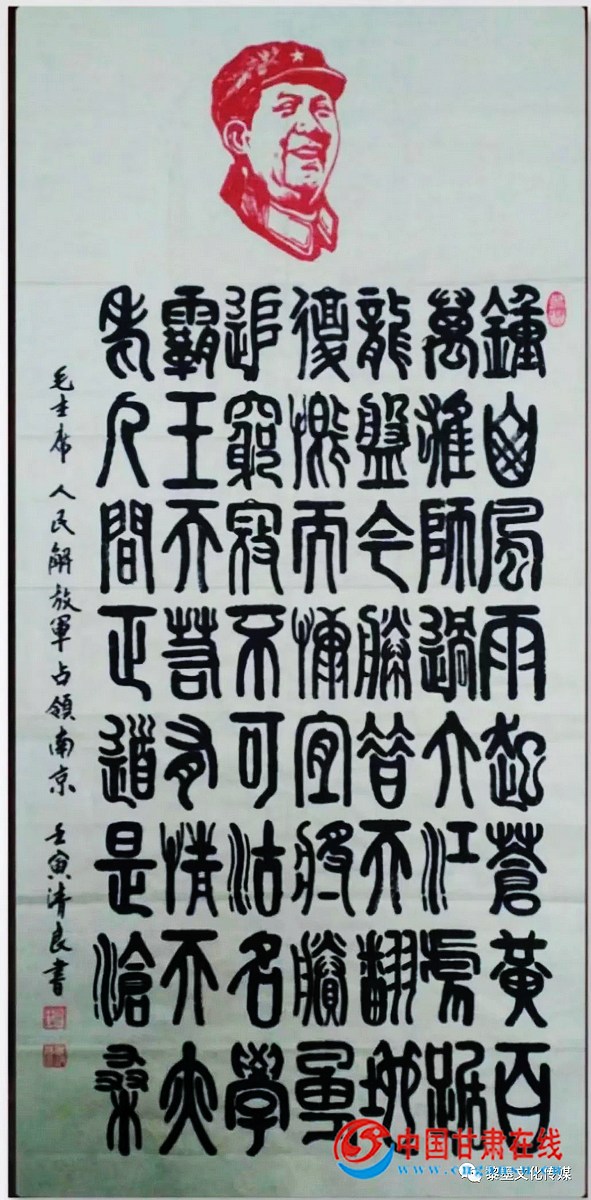 鍾山風雨起蒼黃百
萬雄師過大江虎踞
龍盤今勝昔天翻地
復慨而慷宜將賸勇
追窮寇不可沽名學
霸王天若有情天亦
老人間正道是滄桑
毛主席 人民解放軍占領南京 壬寅清良書
中国甘肃在线
黎墨文化传媒